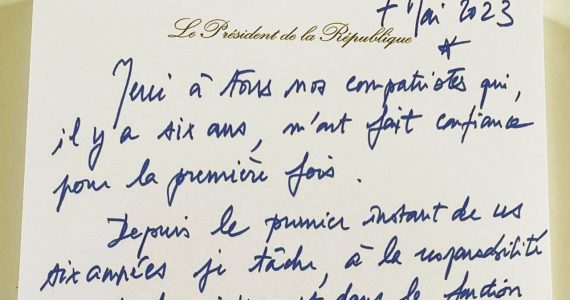 7 Mai 2023
Le Président de la République
Merci à tous nos compatriotes qui,
il y a six ans, m'ont fait confiance
pour la première fois.
Depuis le premier instant de ces
six années je tâche, à la responsabilité
dans la fonction